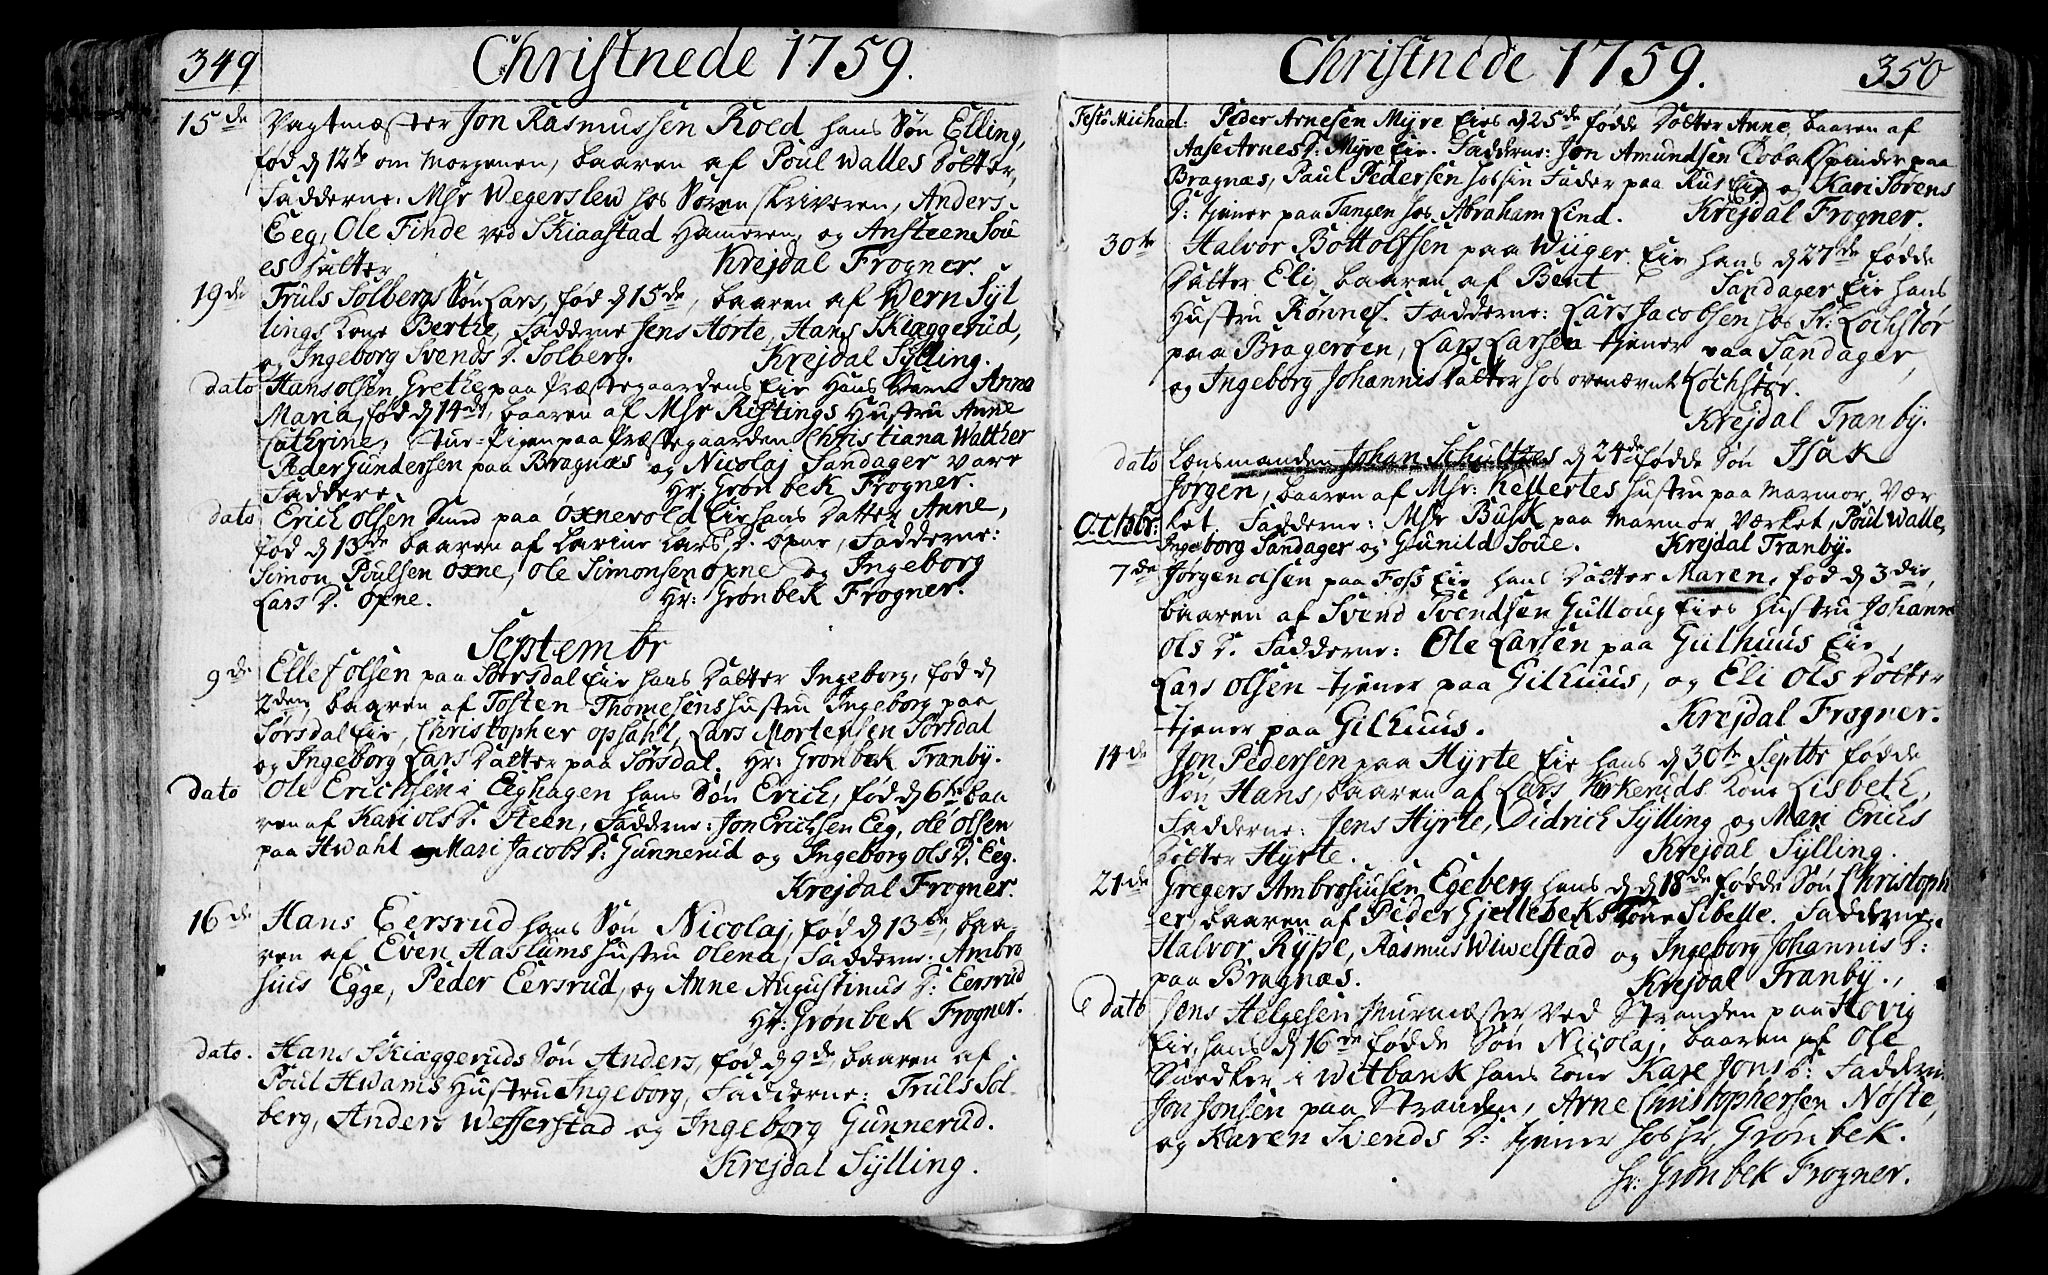 349 Christnede 1759.
15de Vagtmæster Jon Rasmussen Roed hans Søn Elling,
fød d 12te om Morgenen, baaren af Poul Walles Dotter,
Fadderne: Msr Wegerslew hos Soren skriveren, Anders
Eeg, Ole Finde ved Skiaastad Hameren, og Ansteen Sou
es Datter Krejdal Frogner.
19de Truls Solbergs Søn Lars, fød d 15de, baaren af Wern Syl
lings Kone Berthe, Fadderne Jens Horte, Hans Skiæggerud,
og Ingeborg Svends D. Solberg. Krejdal Sylling.
dato Hans Olsen Grethe paa Præstegaardens Eie Hans Barn Anna
Maria, fød d 14de, baaren af Msr Ristings Hustru Anne
Cathrine, Stue-Pigen paa Præstegaarden Christiana Walther
Peder Gundersen paa Bragnæs og Nicolaj Sandager vare
Faddere. Hr: Grønbek Frogner.
dato Erich Olsen Smed paa Oxnevold Eie hans Datter Anne,
fød d 13de baaren af Karine Lars D. Oxne, Fadderne:
Simon Poulsen Oxne, Ole Simonsen Oxne og Ingeborg
Lars D. Oxne. Hr: Grønbek Frogner.
Septembr
9de Ellef Olsen paa Sørsdal Eie hans Datter Ingeborg, fød d
2den, baaren af Tosten Thomesens Hustru Ingeborg paa
Sørsdal Eie, Christopher Opsahl, Lars Mortensen Sørsdal
og Ingeborg Lars Datter paa Sørsdal. Hr: Grønbek Tranby.
dato Ole Erichsen i Eeghagen hans Søn Erich, fød d 6te baa
ren af Kari Ols D. Steen, Fadderne: Jon Erichsen Eeg, Ole Olsen
paa Hwahl og Mari Jacobs D: Gunnerud og Ingeborg Ols D. Eeg.
Krejdal Frogner.
16de Hans Eersrud hans Søn Nicolaj, fød d 13de, baa
ren af Even Haslums Hustru Olena, Fadderne: Ambro
sius Egge, Peder Eersrud, og Anne Augustinus D: Eersrud
Hr: Grønbek Frogner.
dato. Hans Skiæggeruds Søn Anders, fød d 9de, baaren af
Poul Hwams Hustru Ingeborg, Fadderne: Truls Sol
berg, Anders Wefferstad og Ingeborg Gunnerud.
Krejdal Sylling.
Christnede 1759. 350
Festo Michael: Peder Arnesen Myre Eies d 25de fødde Dotter Anne, baaren af
Aase Arnes D: Myre Eie. Fadderne: Jon Amundsen Tobakspinder paa
Bragnæs, Paul Pedersen hos sin Fader paa Rus Eie og Kari Sørens
D: tjener paa Tangen hos Abraham Lind. Krejdal Frogner.
30te Halvor Bottolfsen paa Wiiger Eie hans d 27de fødde
Datter Eli, baaren af Bent Sandager Eie hans
Hustru Rønnef. Fadderne: Lars Jacobsen hos Sr: Kochstør
paa Bragerøen, Lars Larsen tjener paa Sandager,
og Ingeborg Johannis Datter hos ovenævnt Kochstør.
Krejdal Tranby.
dato Lænsmanden Johan Schultzes d 24de fødde Søn Isak
Jørgen, baaren af Msr: Kellertes Hustru paa Marmor Vær
Octobr: ket. Fadderne: Msr Busk paa Marmor Værket, Poul Walle,
Ingeborg Sandager og Gunild Soue. Krejdal Tranby.
7de Jørgen Olsen paa Foss Eie hans Datter Maren, fød d 3die,
baaren af Svend Svendsen Gulloug Eies Hustru Johanne
Ols D. Fadderne: Ole Larsen paa Gilhuus Eie,
Lars Olsen tjener paa Gilhuus, og Eli Ols Dotter
tjener paa Gilhuus. Krejdal Frogner.
14de Jon Pedersen paa Hyrte Eie hans d 30te Septbr fødde
Søn Hans, baaren af Lars Kirkeruds Kone Lisbeth,
Fadderne: Jens Hyrte, Didrich Sylling og Mari Erichs
Datter Hyrte. Krejdal Sylling.
21de Gregers Ambrosiusen Egeberg hans d 18de fødde Søn Christoph
er, baaren af Peder Gjellebeks Kone Sibelle. Fadderne:
Halvor Rype, Rasmus Wiwelstad og Ingeborg Johannis D:
paa Bragnæs. Krejdal Tranby.
dato Jens Helgesen Murmæster ved Stranden paa Hovig
Eie, hans d 16de fødde Søn Nicolaj, baaren af Ole
Snedker i Witbank hans Kone Kare Jons D: Fadderne
Jon Jonsen paa Stranden, Arne Christophersen Nøste,
og Karen Svends D: tjener hos Hr. Grønbek.
Hr: Grønbek Frogner.